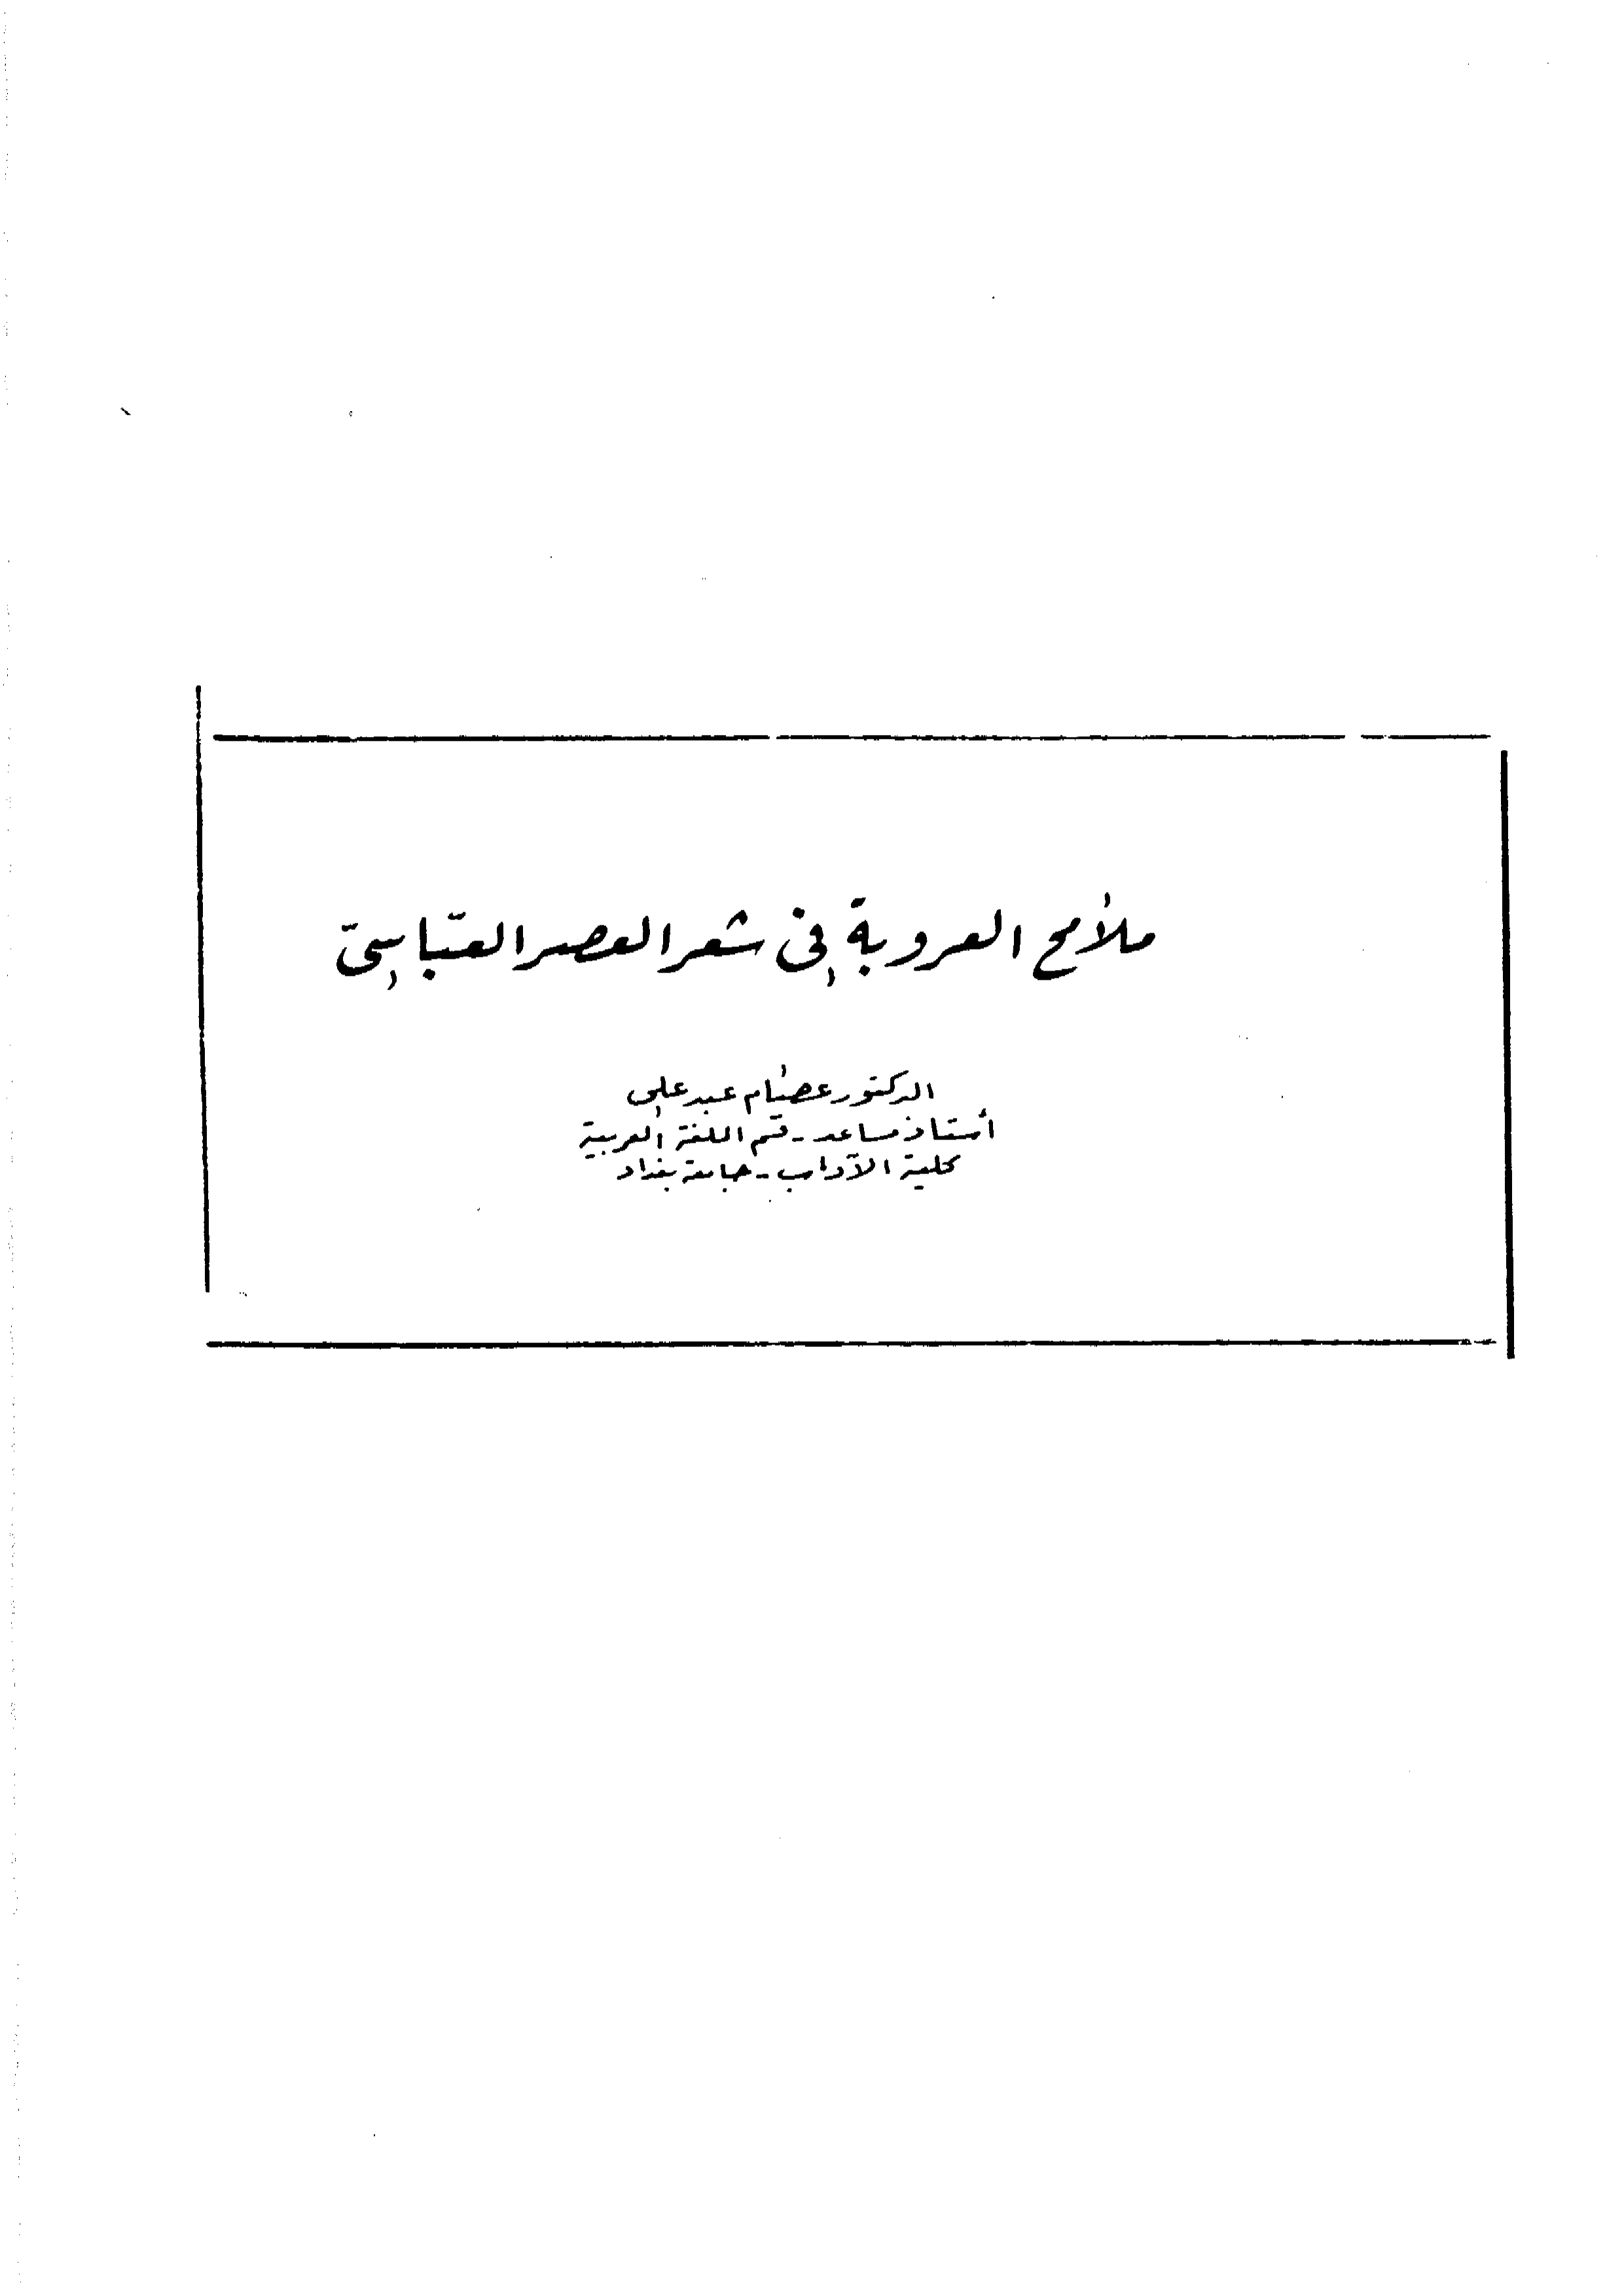 ملامح العروبة في شعر العصر العبّاسيّ
الدكتور عصام عبد علي
أستاذ مساعد - قسم اللغة العربية
كلية الآداب - جامعة بغداد